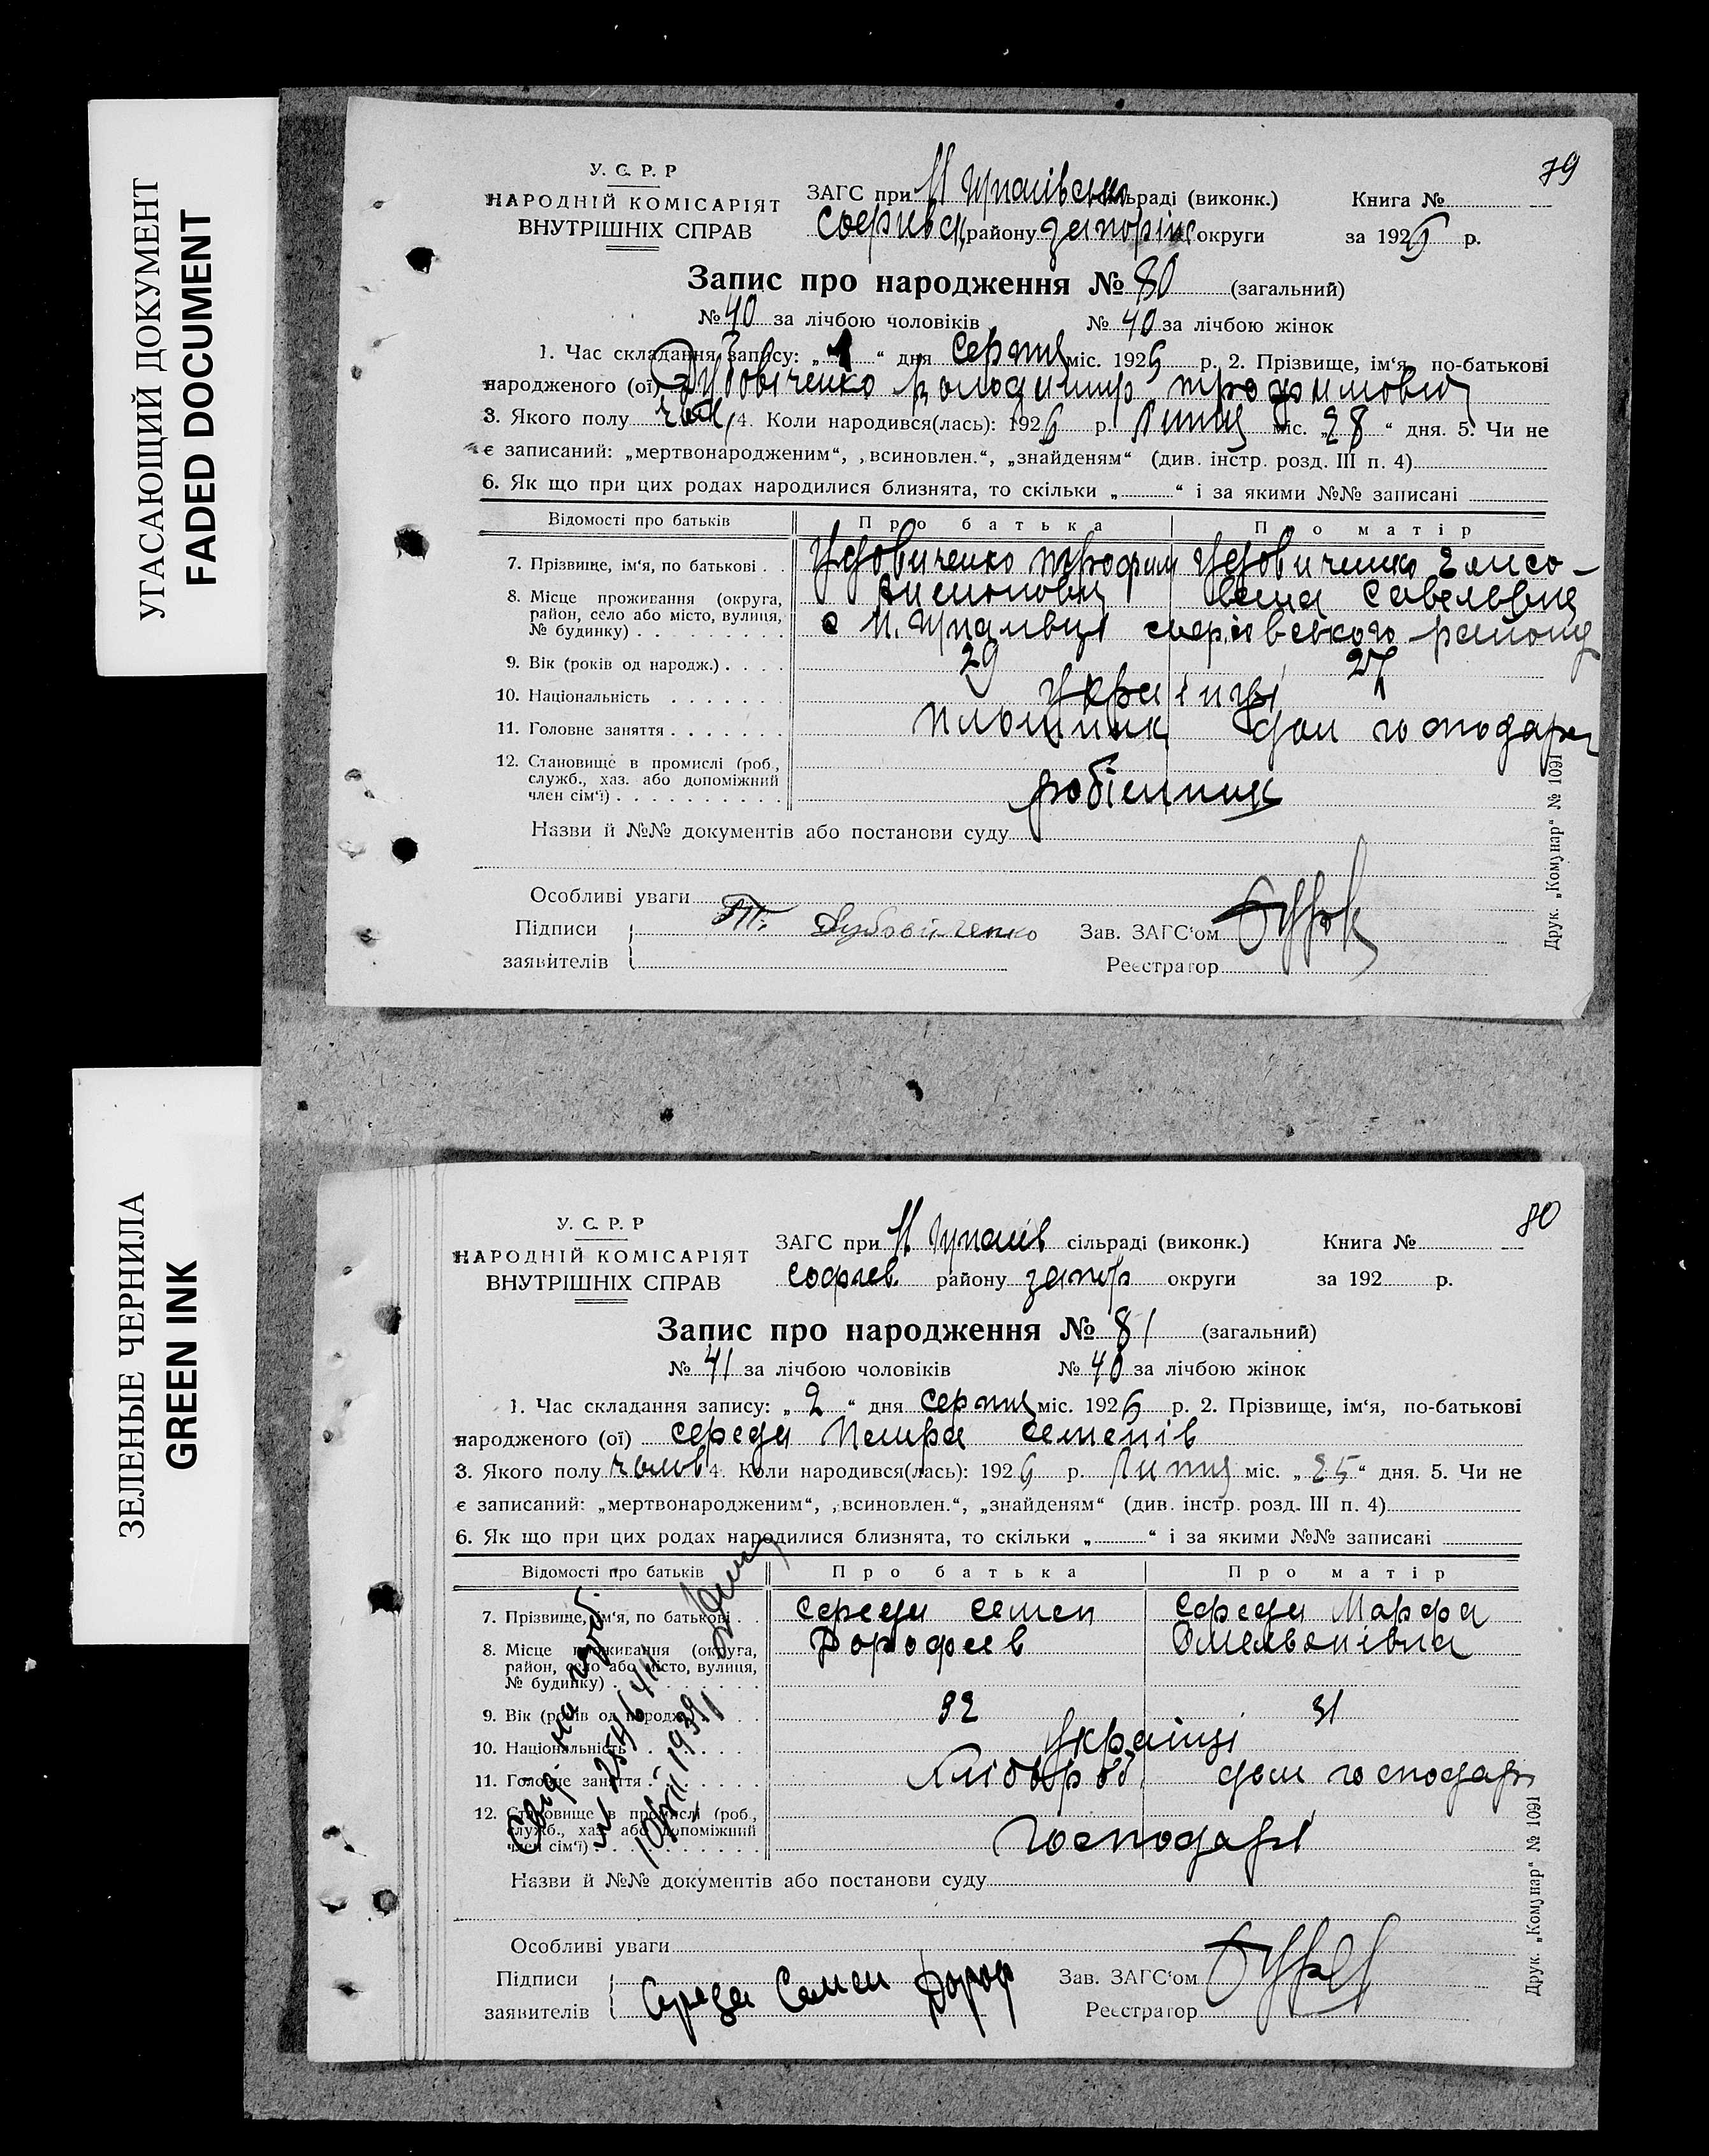 УГАСАЮЩИЙ ДОКУМЕНТ
FADED DOCUMENT
79
У. С. Р. Р
НАРОДНІЙ КОМІСАРІЯТ
ВНУТРІШНІХ СПРАВ
ЗАГС при М сільраді (виконк.) Книга №
району запоріж округи за 1926 р.
Запис про народження № 80 (загальний)
№ 40 за лічбою чоловіків № 40 за лічбою жінок
1. Час складання запису: „ 1 “ дня серпня міс. 1926 р. 2. Прізвище, ім‘я, по-батькові
народженого (ої) Володимир трофимович
3. Якого полу чол 4. Коли народився(лась): 1926 р. Липня міс. „ 28 “ дня. 5. Чи не
є записаний: „мертвонародженим“, „всиновлен.“, „знайденям“ (див. інстр. розд. III п. 4)
6. Як що при цих родах народилися близнята, то скільки „ “ і за якими №№ записані
Відомості про батьків Про батька Про матір
7. Прізвище, ім‘я, по батькові . . Удовиченко трофим Удовиченко Елисо-
8. Місце проживання (округа, Савелевна
район, село або місто, вулиця, с М. району
№ будинку) . . . . . . . . .
9. Вік (років од народж.) . . . . 29 27
10. Національність . . . . . . . українці
11. Головне заняття . . . . . . . плотник дом господарк
12. Становище в промислі (роб.,
служб., хаз. або допоміжний
член сім‘ї) . . . . . . . . . . робітник
Назви й №№ документів або постанови суду
Особливі уваги
Підписи Т. Зав. ЗАГС‘ом
заявителів Реєстратор
Друк. „Комунар“ № 1091
ЗЕЛЕНЫЕ ЧЕРНИЛА
GREEN INK
80
У. С. Р. Р
НАРОДНІЙ КОМІСАРІЯТ
ВНУТРІШНІХ СПРАВ
ЗАГС при М сільраді (виконк.) Книга №
Софиев. району запор округи за 192 р.
Запис про народження № 81 (загальний)
№ 41 за лічбою чоловіків № 40 за лічбою жінок
1. Час складання запису: „ 2 “ дня серпня міс. 1926 р. 2. Прізвище, ім‘я, по-батькові
народженого (ої) середа Петра семенів
3. Якого полу чолов 4. Коли народився(лась): 1926 р. Липня міс. „ 25 “ дня. 5. Чи не
є записаний: „мертвонародженим“, „всиновлен.“, „знайденям“ (див. інстр. розд. III п. 4)
6. Як що при цих родах народилися близнята, то скільки „ “ і за якими №№ записані
Відомості про батьків Про батька Про матір
7. Прізвище, ім‘я, по батькові . . Середа семен Середа Марфа
8. Місце проживання (округа, Дорофеев Омельянівна
район, село або місто, вулиця,
№ будинку) . . . . . . . . .
9. Вік (років од народж.) . . . . 32 31
10. Національність . . . . . . . українці
11. Головне заняття . . . . . . . хлібороб. дом господар
12. Становище в промислі (роб.,
служб., хаз. або допоміжний
член сім‘ї) . . . . . . . . . . господарі
Назви й №№ документів або постанови суду
Особливі уваги
Підписи Середа Семен Дороф Зав. ЗАГС‘ом
заявителів Реєстратор
Друк. „Комунар“ № 1091